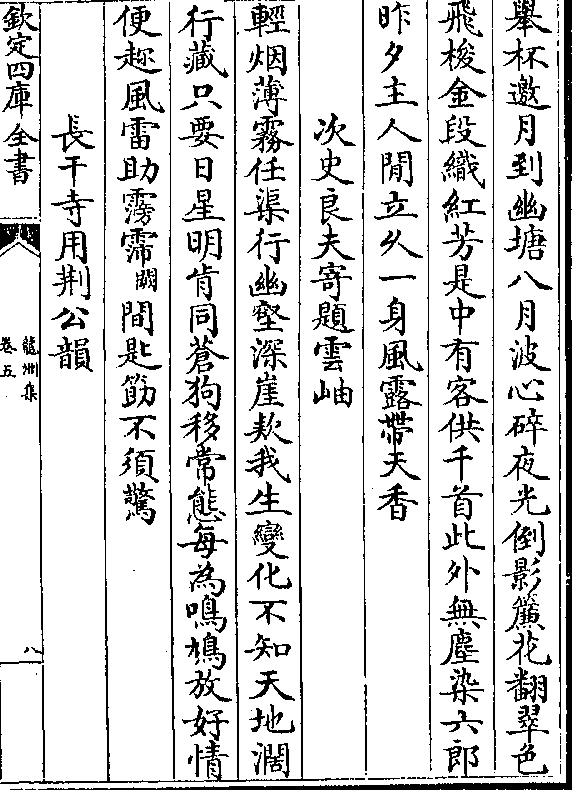 舉杯邀月到幽塘八月波心碎夜光倒影簾花翻翠色
飛梭金段織紅芳是中有客供千首此外無塵染六郎
昨夕主人閒立久一身風露帶天香
次史良夫寄題雲岫
輕烟薄霧任渠行幽壑深崖欸我生變化不知天地濶
行藏只要日星明肯同蒼狗移常態每為鳴鳩放好情
便趂風雷助霶霈闕間匙筯不須驚
長干寺用荆公韻
欽定四庫全書
龍洲集
卷五
八